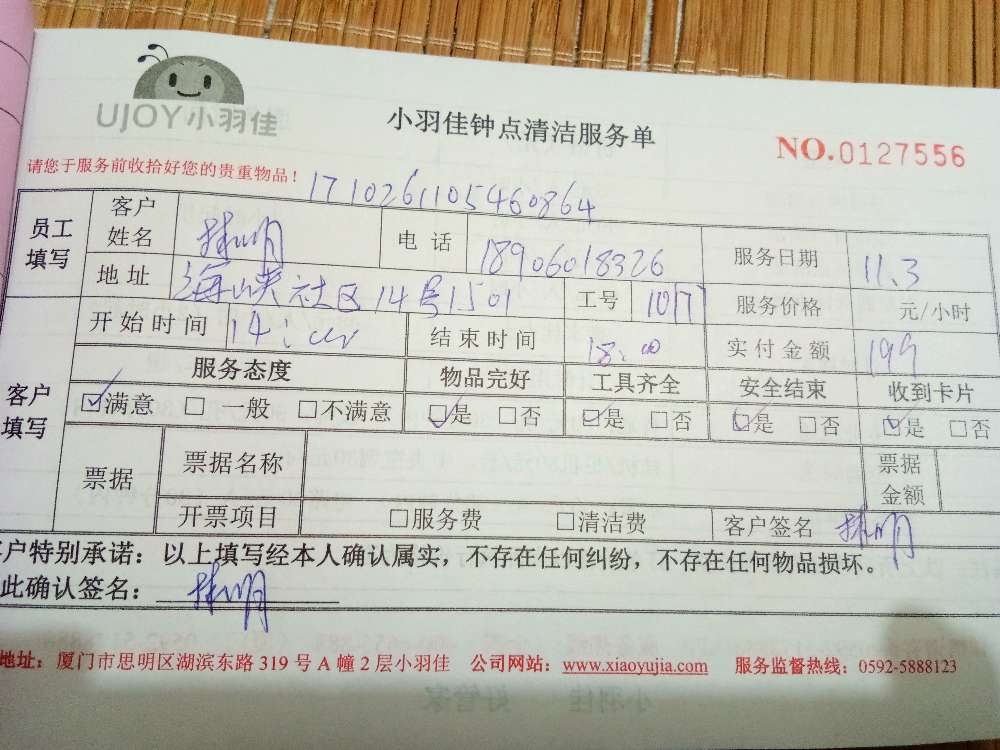 UJOY小羽佳
小羽佳钟点清洁服务单
NO.0127556
请您于服务前收拾好您的贵重物品！
1710261105460864
员工填写 客户姓名 林明 电话 18906018326 服务日期 11.3
地址 海峡社区14号1501 工号 1017 服务价格 元/小时
客户填写 开始时间 14:00 结束时间 18:00 实付金额 199
服务态度 物品完好 工具齐全 安全结束 收到卡片
☑满意 □一般 □不满意 ☑是 □否 ☑是 □否 ☑是 □否 ☑是 □否
票据 票据名称 票据金额
开票项目 □服务费 □清洁费 客户签名 林明
客户特别承诺：以上填写经本人确认属实，不存在任何纠纷，不存在任何物品损坏。
此确认签名： 林明
地址：厦门市思明区湖滨东路319号A幢2层小羽佳 公司网站：www.xiaoyujia.com 服务监督热线：0592-5888123